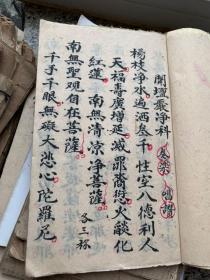 開壇嚴净科
楊枝净水遍洒叁千性空八德利人
天福壽廣增延滅罪裔愆火燄化
紅蓮 南無清凉净菩薩
南無聖观自在菩薩
各三称
千手千眼無礙大悲心陀羅尼